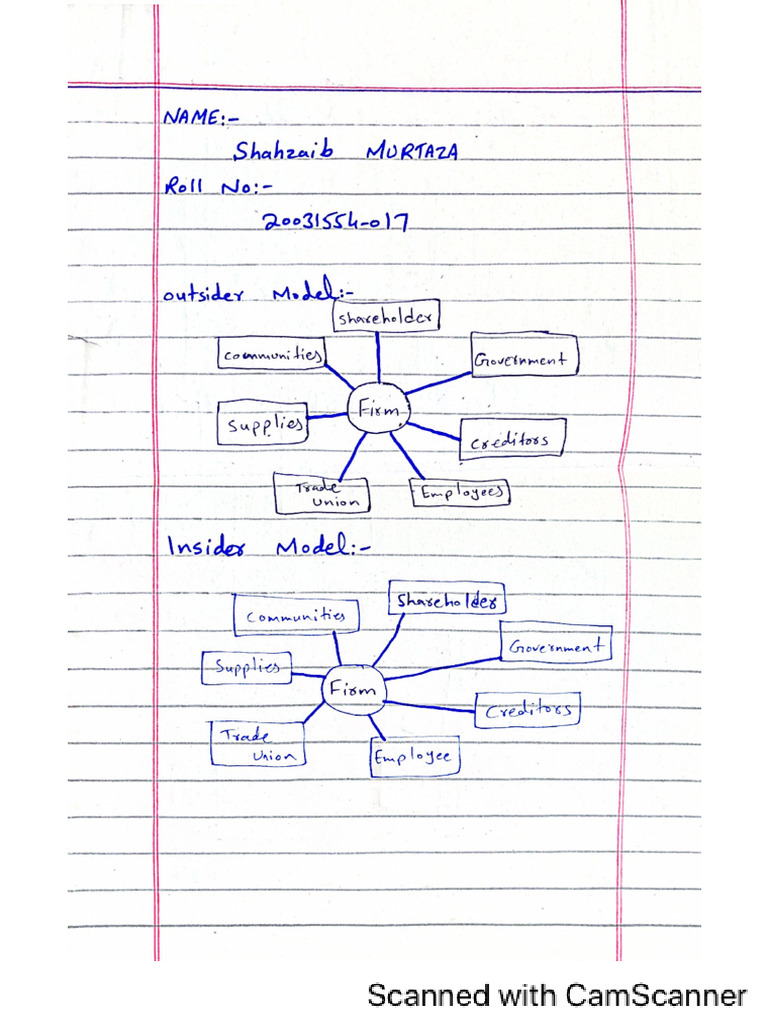 NAME:-
Shahzaib MURTAZA
Roll No:-
20031554-017
outsider Model:-
Shareholder
communities
Government
Firm
Supplies
Creditors
Trade
Union
Employees
Insider Model:-
Shareholder
Communities
Government
Supplies
Firm
Creditors
Trade
Union
Employee
Scanned with CamScanner